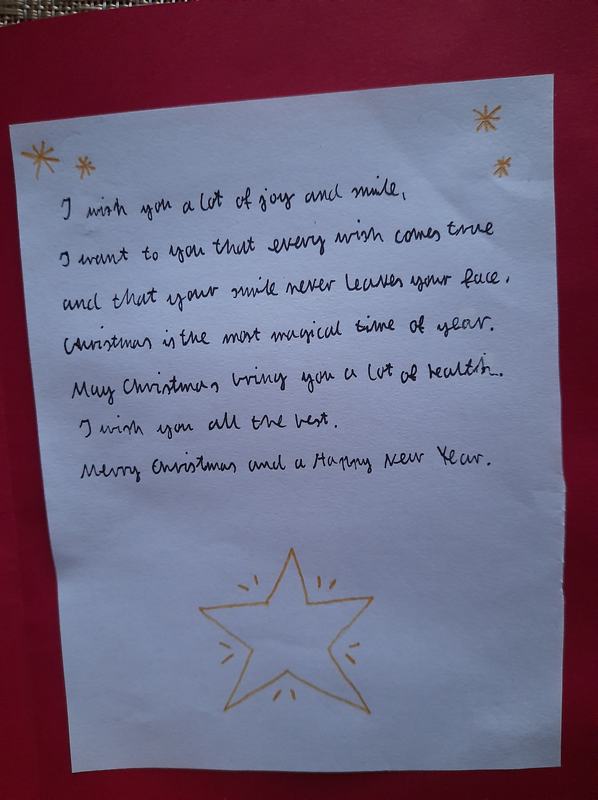 I wish you a lot of joy and smile,
I want to you that every wish comes true
and that your smile never leaves your face.
Christmas is the most magical time of year.
May Christmas bring you a lot of health.
I wish you all the best.
Merry Christmas and a Happy New Year.